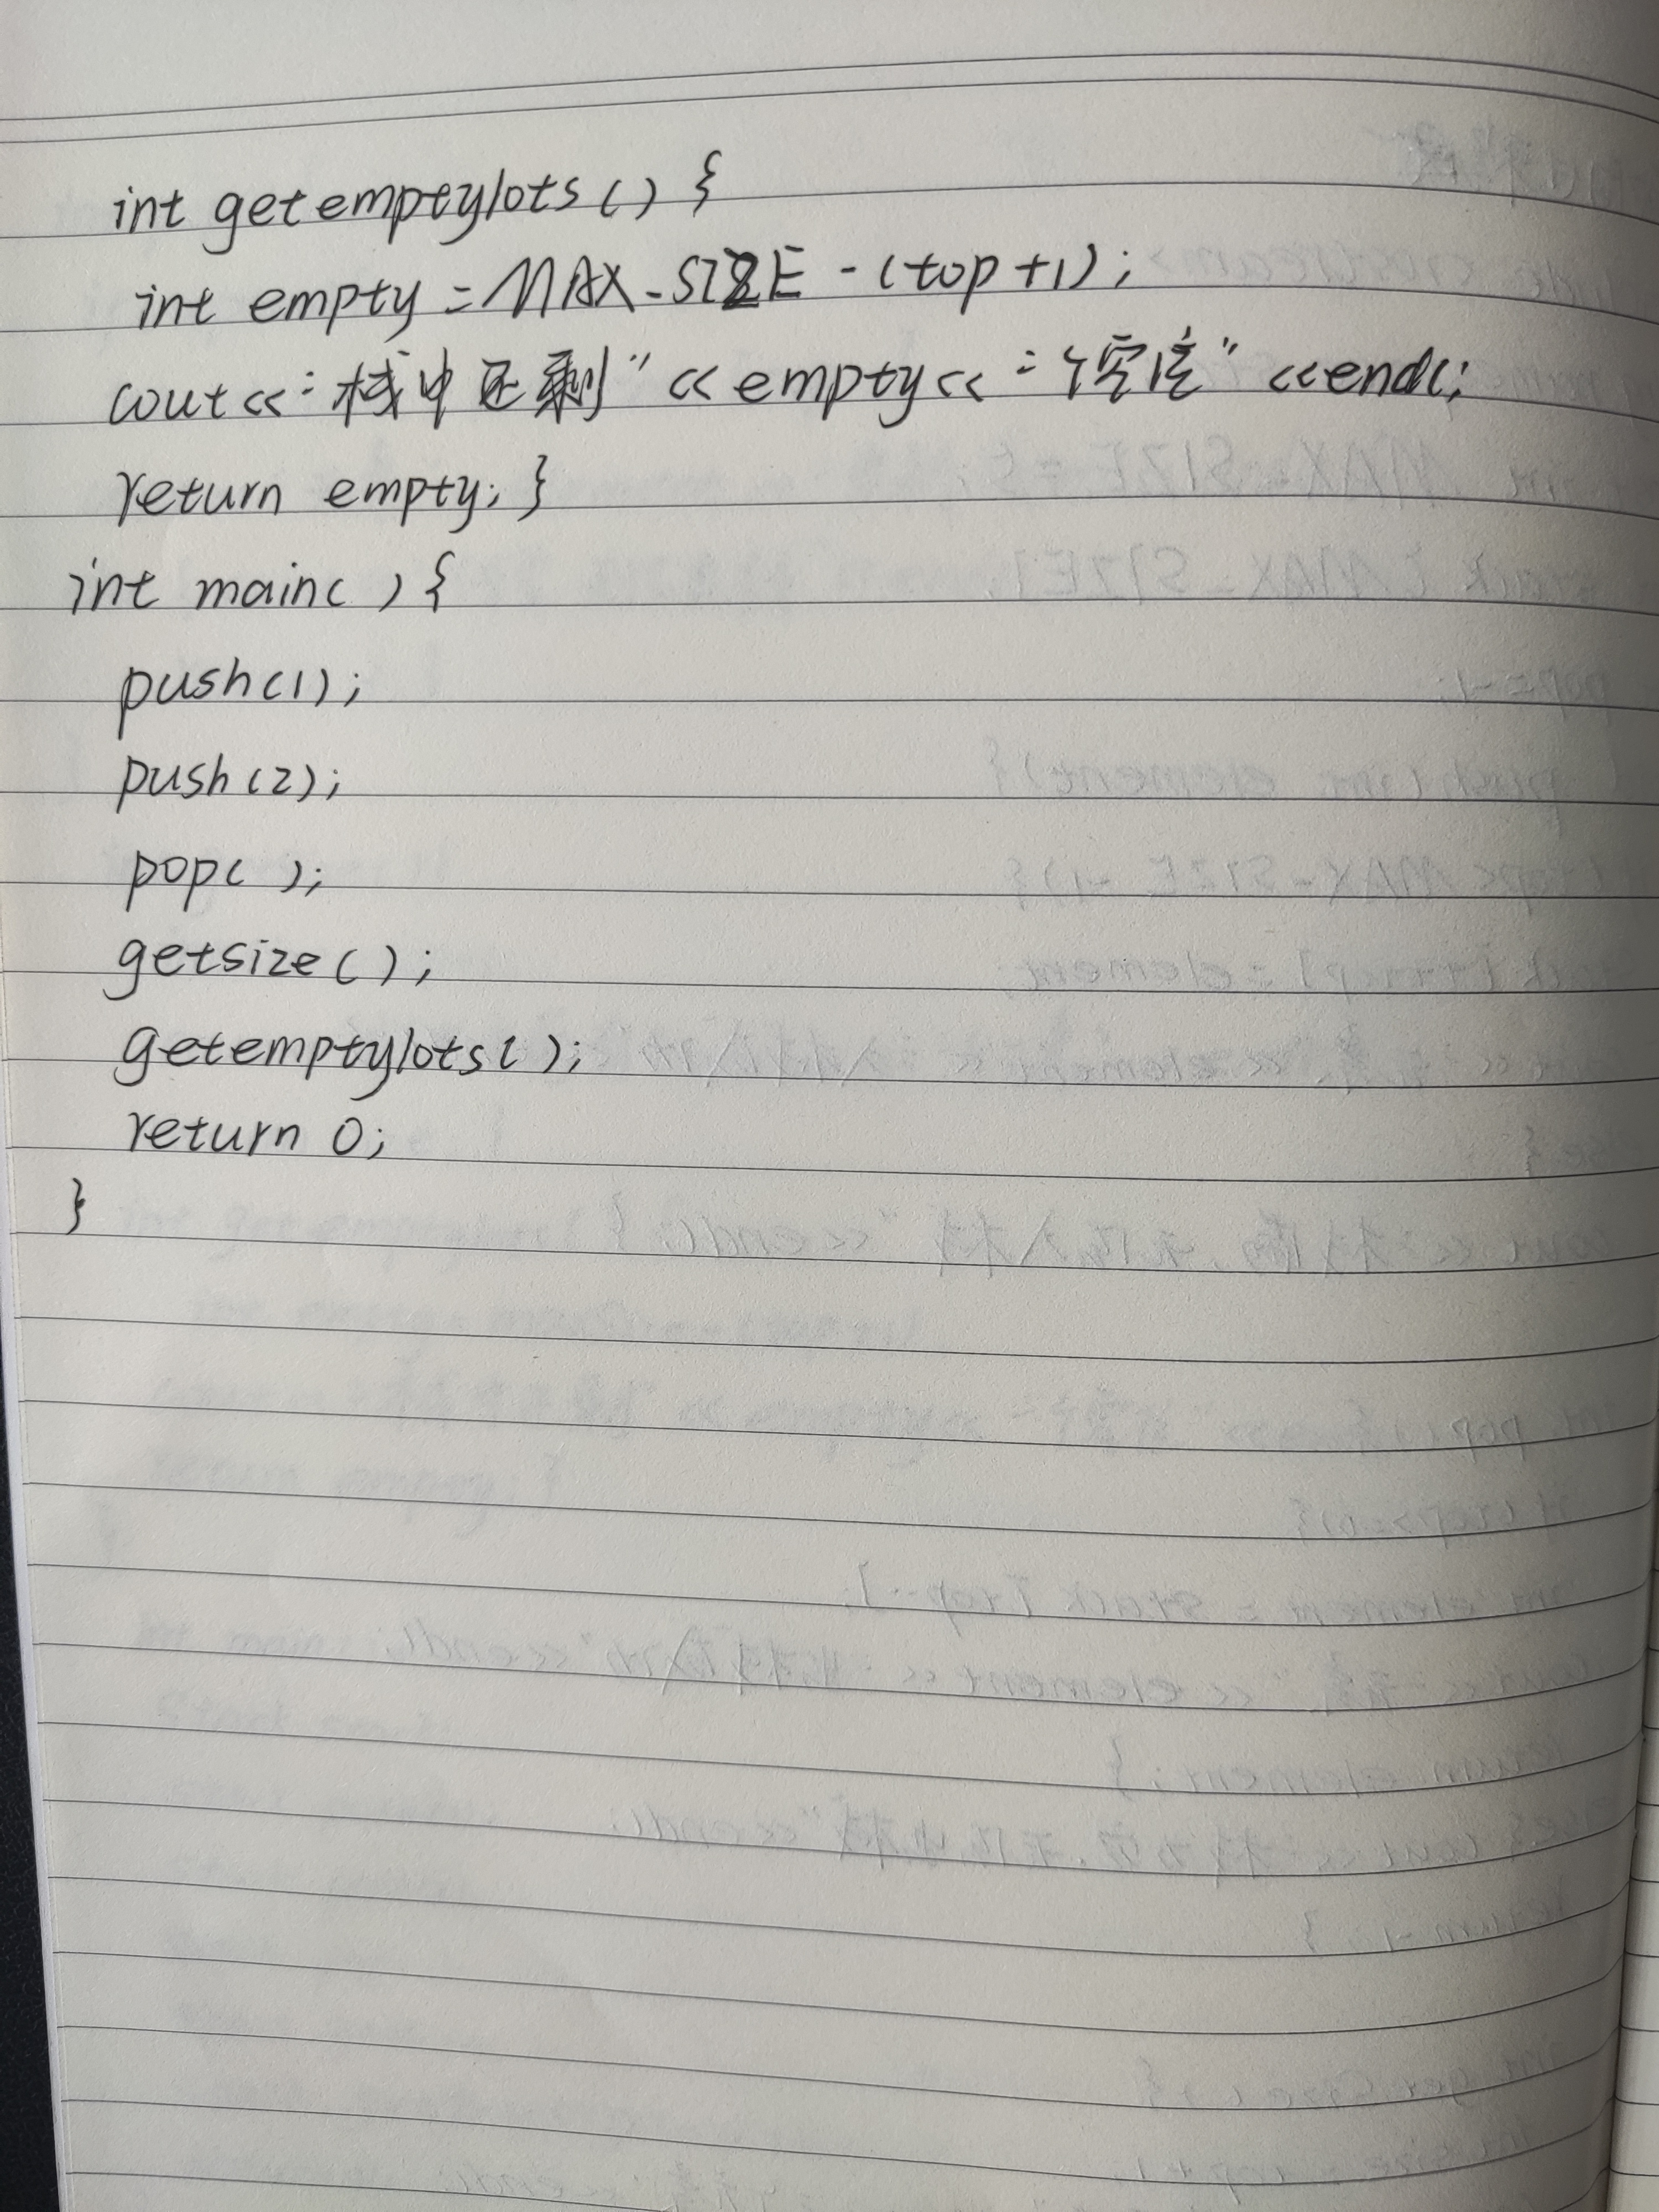 int getemptylots() {
int empty = MAX_SIZE - (top+1);
cout<<"栈中还剩"<<empty<<"个空位"<<endl;
return empty; }
int main( ) {
push(1);
push(2);
pop( );
getsize( );
getemptylots( );
return 0;
}